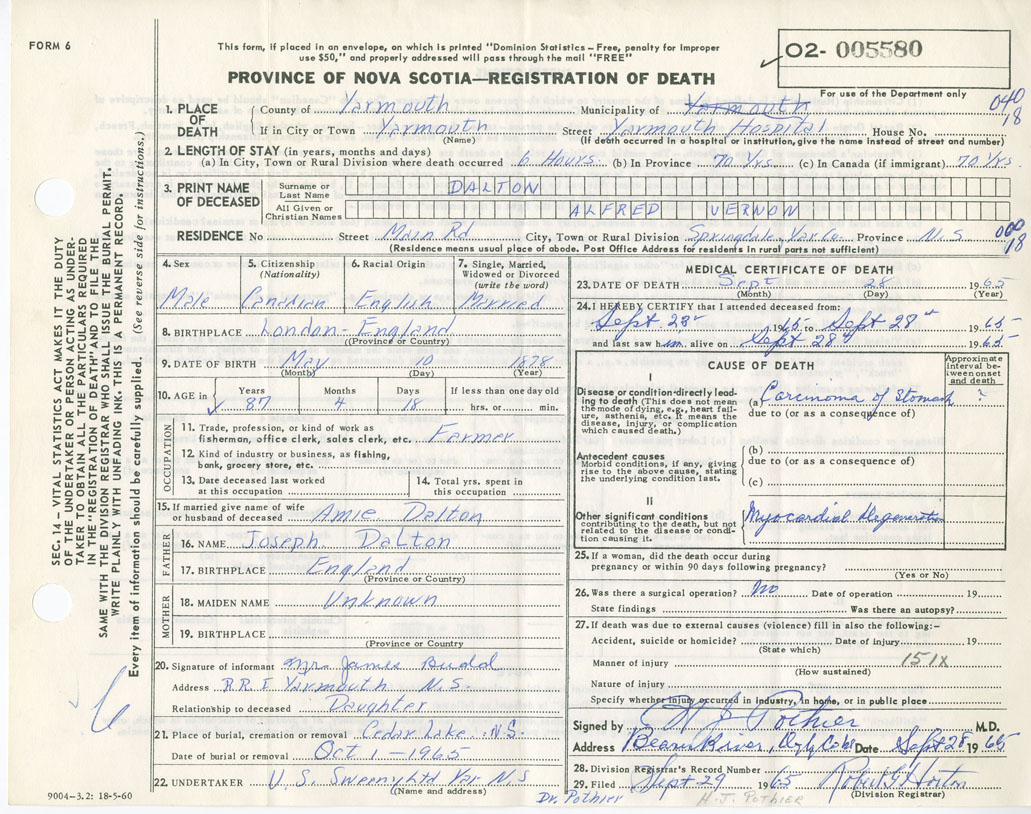 FORM 6
This form, if placed in an envelope, on which is printed "Dominion Statistics - Free, penalty for improper
use $50," and properly addressed will pass through the mail "FREE"
PROVINCE OF NOVA SCOTIA—REGISTRATION OF DEATH
02- 005580
For use of the Department only
040
18
1. PLACE OF DEATH
County of Yarmouth Municipality of Yarmouth
If in City or Town Yarmouth Street Yarmouth Hospital House No.
(Name) (If death occurred in a hospital or institution, give the name instead of street and number)
2. LENGTH OF STAY (in years, months and days)
(a) In City, Town or Rural Division where death occurred 6 Hours. (b) In Province 70 Yrs. (c) In Canada (if immigrant) 70 Yrs
3. PRINT NAME OF DECEASED
Surname or Last Name DALTON
All Given or Christian Names ALFRED VERNON
RESIDENCE No Street Main Rd City, Town or Rural Division Springdale, Yar Co. Province N.S
(Residence means usual place of abode. Post Office Address for residents in rural parts not sufficient)
000
18
4. Sex
Male
5. Citizenship
(Nationality)
Canadian
6. Racial Origin
English
7. Single, Married, Widowed or Divorced
(write the word)
Married
8. BIRTHPLACE London - England
(Province or Country)
9. DATE OF BIRTH May 10 1878
(Month) (Day) (Year)
10. AGE in Years Months Days If less than one day old
87 4 18 hrs. or min.
OCCUPATION
11. Trade, profession, or kind of work as
fisherman, office clerk, sales clerk, etc. Farmer
12. Kind of industry or business, as fishing,
bank, grocery store, etc.
13. Date deceased last worked
at this occupation
14. Total yrs. spent in
this occupation
15. If married give name of wife
or husband of deceased Amie Dalton
FATHER
16. NAME Joseph Dalton
17. BIRTHPLACE England
(Province or Country)
MOTHER
18. MAIDEN NAME Unknown
19. BIRTHPLACE
(Province or Country)
20. Signature of informant Mrs James Budd
Address R.R.1 Yarmouth N.S.
Relationship to deceased Daughter
21. Place of burial, cremation or removal Cedar Lake N.S.
Date of burial or removal Oct 1 - 1965
22. UNDERTAKER V.S. Sweeny Ltd Yar N.S
(Name and address)
MEDICAL CERTIFICATE OF DEATH
23. DATE OF DEATH Sept 28 1965
(Month) (Day) (Year)
24. I HEREBY CERTIFY that I attended deceased from:
Sept 28 1965 to Sept 28 1965
and last saw him alive on Sept 28 1965
CAUSE OF DEATH
Approximate interval between onset and death
I
Disease or condition directly leading to death (This does not mean
the mode of dying, e.g., heart failure, asthenia, etc. It means the
disease, injury, or complication
which caused death.)
(a) Carcinoma of Stomach ?
due to (or as a consequence of)
Antecedent causes
Morbid conditions, if any, giving
rise to the above cause, stating
the underlying condition last.
(b)
due to (or as a consequence of)
(c)
II
Other significant conditions
contributing to the death, but not
related to the disease or condition causing it.
Myocardial degeneration
25. If a woman, did the death occur during
pregnancy or within 90 days following pregnancy?
(Yes or No)
26. Was there a surgical operation? No Date of operation 19
State findings Was there an autopsy?
27. If death was due to external causes (violence) fill in also the following:-
Accident, suicide or homicide? Date of injury 19
(State which)
Manner of injury 151X
(How sustained)
Nature of injury
Specify whether injury occurred in industry, in home, or in public place
Signed by H J Pothier M.D.
Address Bear River, Date Sept 28 1965
28. Division Registrar's Record Number
29. Filed Sept 29 1965 Robert G Horton
(Division Registrar)
Dr. Pothier H. J. POTHIER
9004-3.2: 18-5-60
SEC. 14 - VITAL STATISTICS ACT MAKES IT THE DUTY
OF THE UNDERTAKER OR PERSON ACTING AS UNDER-
TAKER TO OBTAIN ALL THE PARTICULARS REQUIRED
IN THE "REGISTRATION OF DEATH" AND TO FILE THE
SAME WITH THE DIVISION REGISTRAR WHO SHALL ISSUE THE BURIAL PERMIT.
WRITE PLAINLY WITH UNFADING INK. THIS IS A PERMANENT RECORD.
Every item of information should be carefully supplied. (See reverse side for instructions.)